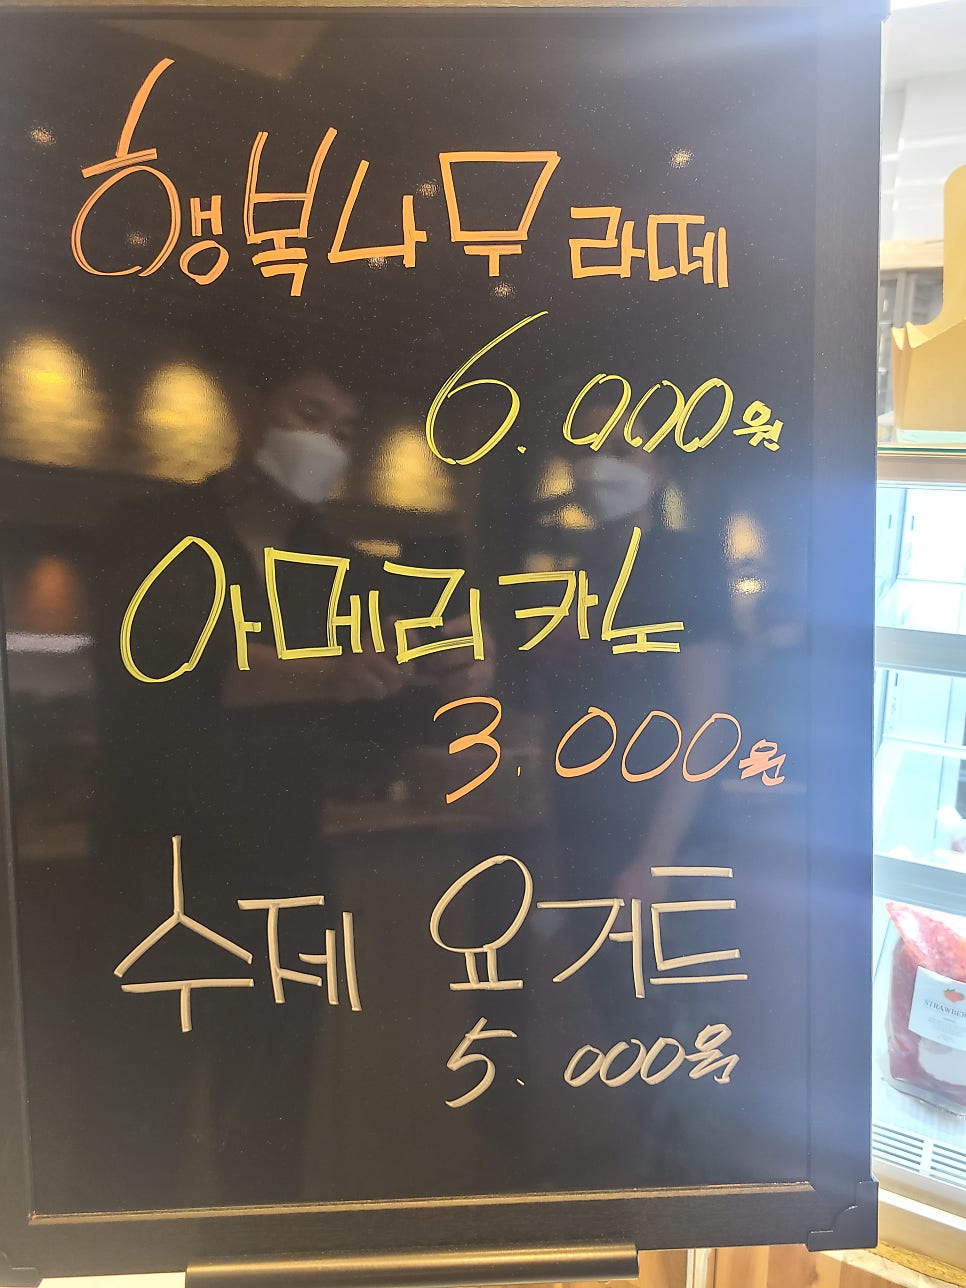 행복나무 라떼
6.000원
아메리카노
3.000원
수제 요거트
5.000원